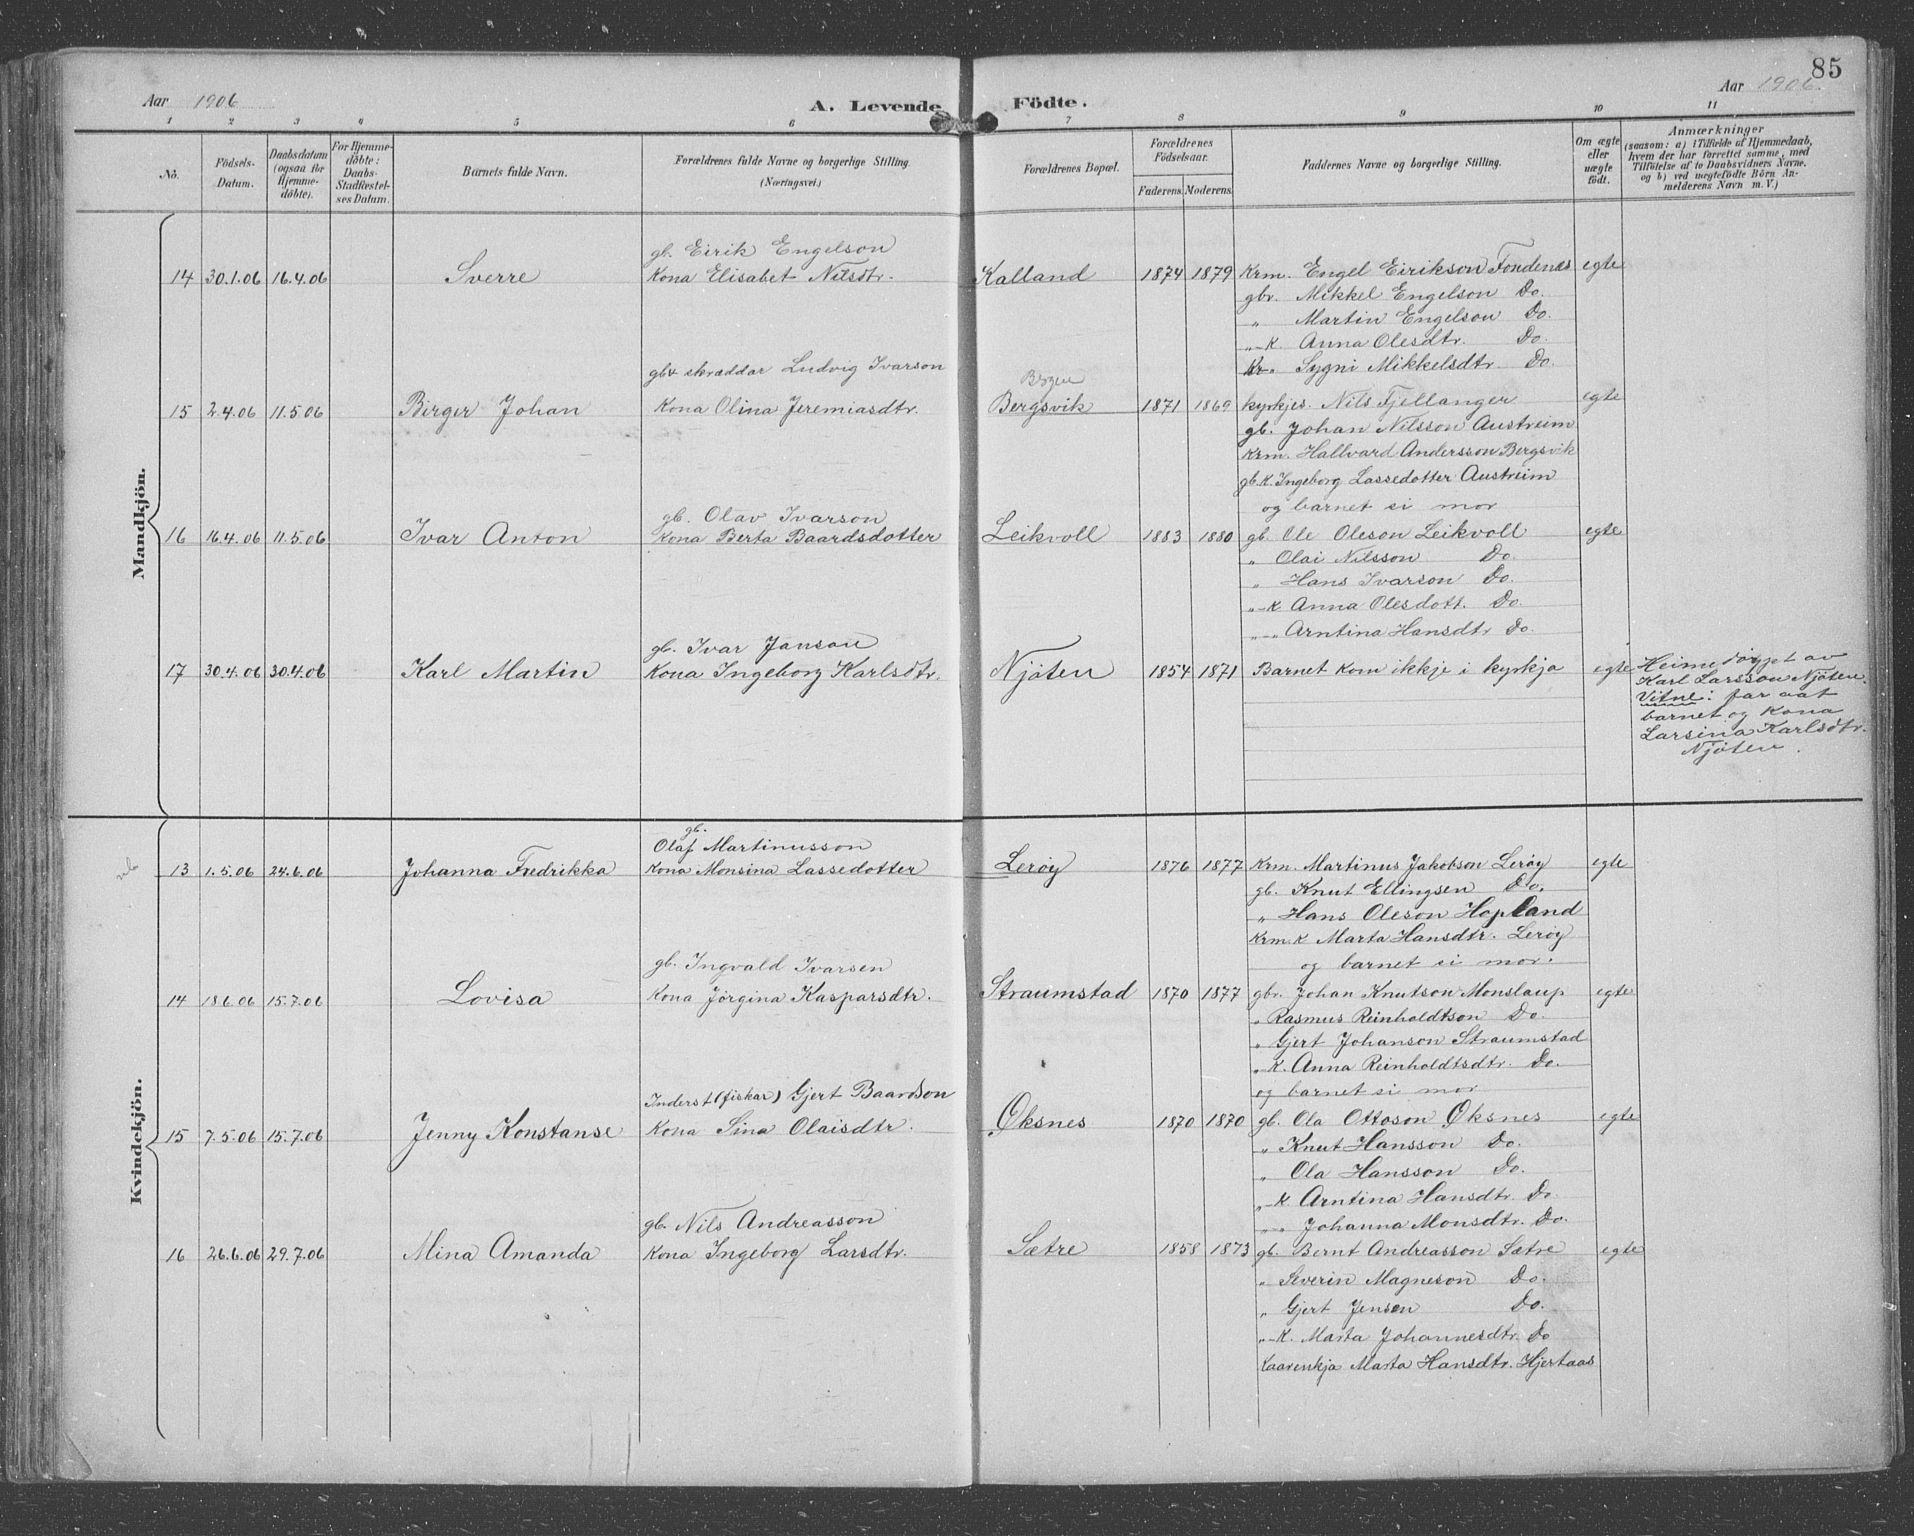 Aar 1906
A. Levende Födte.
85
Aar 1906.
1 2 3 4 5 6 7 8 9 10 11
No.
Födsels-Datum.
Daabsdatum (ogsaa for Hjemme-döbte).
For Hjemme-döbte: Daabs-Stadfæstel-ses Datum.
Barnets fulde Navn.
Forældrenes fulde Navne og borgerlige Stilling.
(Næringsvei.)
Forældrenes Bopæl.
Forældrenes Födselsaar.
Faderens. Moderens.
Faddernes Navne og borgerlige Stilling.
Om ægte eller uægte födt.
Anmærkninger
(saasom: a) i Tilfælde af Hjemmedaab, hvem der har forrettet samme, med Tilföielse af to Daabsvidners Navne. og b) ved uægtefödte Börn An-melderens Navn m. V.)
Mandkjön.
gb. Eirik Engelson
14 30.1.06 16.4.06 Sverre Kona Elisabet Nilsdtr. Kalland 1874 1879 Krm. Engel Eirikson Fondenes egte
gbr. Mikkel Engelson Do.
" Martin Engelson Do.
"-K. Anna Olesdtr. Do.
Sygni Mikkelsdtr. Do.
gbr skræddar Ludvig Ivarson
15 2.4.06 11.5.06 Birger Johan Kona Olina Jeremiasdtr. Bergsvik 1871 1869 kyrkjes. Nils Fjellanger egte
gb. Johan Nilsson Austreim
Krm. Hallvard Andersson Bergsvik
gb.K. Ingeborg Lassedotter Austreim
og barnet si mor
gb. Olav Ivarson
16 16.4.06 11.5.06 Ivar Anton Kona Berta Baardsdotter Leikvoll 1883 1880 gb. Ole Oleson Leikvoll egte
" Olai Nilsson Do.
" Hans Ivarson Do.
"-K Anna Olesdott. Do.
"-" Arntina Hansdtr Do.
gb. Ivar Janson
17 30.4.06 30.4.06 Karl Martin Kona Ingeborg Karlsdtr. Njøten 1854 1871 Barnet kom ikkje i kyrkja egte
Heimedøypt av
Karl Larsson Njøten.
Vitne: far aat
barnet og Kona
Larsina Karlsdtr.
Njøten.
Kvindekjön.
gb.
Olaf Martinusson
13 1.5.06 24.6.06 Johanna Fredrikka Kona Monsina Lassedotter Lerøy 1876 1877 Krm. Martinus Jakobson Lerøy egte
gb. Knut Ellingsen Do.
" Hans Oleson Hopland
Krm. K Marta Hansdtr. Lerøy
og barnet si mor.
gb. Ingvald Ivarsen
14 18.6.06 15.7.06 Lovisa Kona Jørgina Kasparsdtr. Straumstad 1870 1877 gbr. Johan Knutson Monslaup egte
" Rasmus Reinholdtson Do.
" Gjert Johanson Straumstad
"K. Anna Reinholdtsdtr. Do.
og barnet si mor
Inderst (fiskar) Gjert Baardson
15 7.5.06 15.7.06 Jenny Konstanse Kona Sina Olaisdtr. Øksnes 1870 1870 gb. Ola Ottoson Øksnes egte
" Knut Hansson Do.
" Ola Hansson Do.
"-K. Arntina Hansdtr. Do.
"-" Johanna Monsdtr. Do.
gb. Nils Andreasson
16 26.6.06 29.7.06 Mina Amanda Kona Ingeborg Larsdtr. Sætre 1858 1873 gb. Bernt Andreasson Sætre egte
" Severin Magneson Do.
" Gjert Jensen Do.
"-K. Marta Johannesdtr. Do
Kaarenkja Marta Hansdtr. Hjertaas